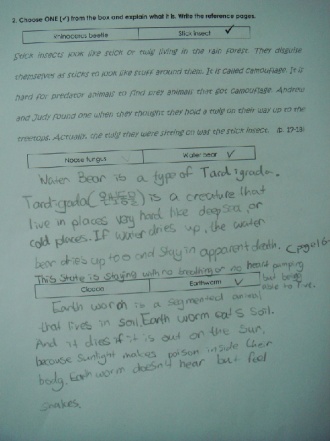 2. Choose ONE (✓) from the box and explain what it is. Write the reference pages.
rhinoceros beetle
Stick insect ✓
Stick insects look like stick or twig living in the rain forest. They disguise
themselves as sticks to look like stuff around them. It is called camouflage. It is
hard for predator animals to find prey animals that got camouflage. Andrew
and Judy found one when they thought they hold a twig on their way up to the
treetops. Actually, the twig they were sitting on was the stick insect. (p. 17-18)
Noose fungus
Water bear ✓
Water Bear is a type of Tardigrada.
Tardigrada() is a creature that
live in places very hard like deep sea, or
cold places. If water dries up, the water
bear dries up too and stay in apparent death. (pg 16
This State is staying with no breathing or no heart pumping
but being
able to live.
Cicada
Earthworm ✓
Earth worm is a segmented animal
that lives in soil. Earth worm eats soil.
And it dies if it is out or the sun,
because sunlight makes poison inside their
body. Earth worm doesn't hear but feel
snakes.